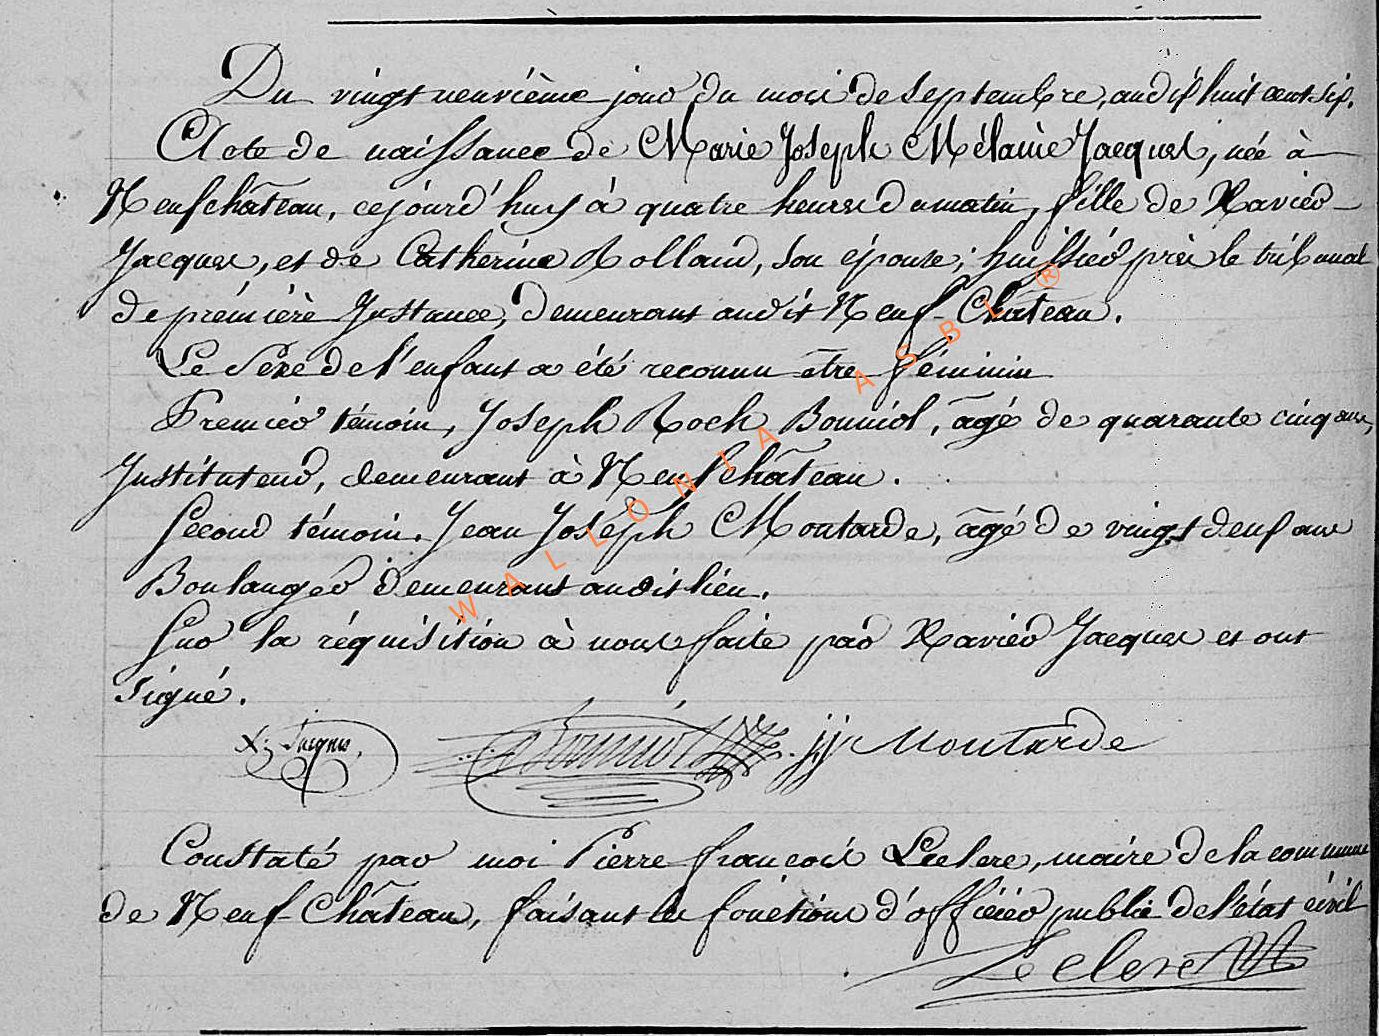 Du vingt neuvième jour du mois de septembre, an dix huit cent six.
Acte de naissance de Marie Joseph Mélanie Jacques, née à
Neufchâteau, cejourd'huy à quatre heures du matin, fille de Xavier
Jacques, et de Catherine Rolland, son épouse; huissier près le tribunal
de première Instance, demeurant audit Neuf-Château.
Le Sexe de l'enfant a été reconnu être féminin
Premier témoin, Joseph Roch Bonniol, âgé de quarante cinq ans,
Instituteur, demeurant à Neufchâteau.
Second témoin. Jean Joseph Moutarde, âgé de vingt deux ans
Boulanger demeurant audit lieu.
Sur la réquisition à nous faite par Xavier Jacques et ont
signé.
X; Jacques, Bonniol jj Moutarde
Constaté par moi Pierre françois Leclerc, maire de la commune
de Neuf-Château, faisant les fonctions d'officier public de l'état civil
Leclerc
WALLONIA ASBL ®